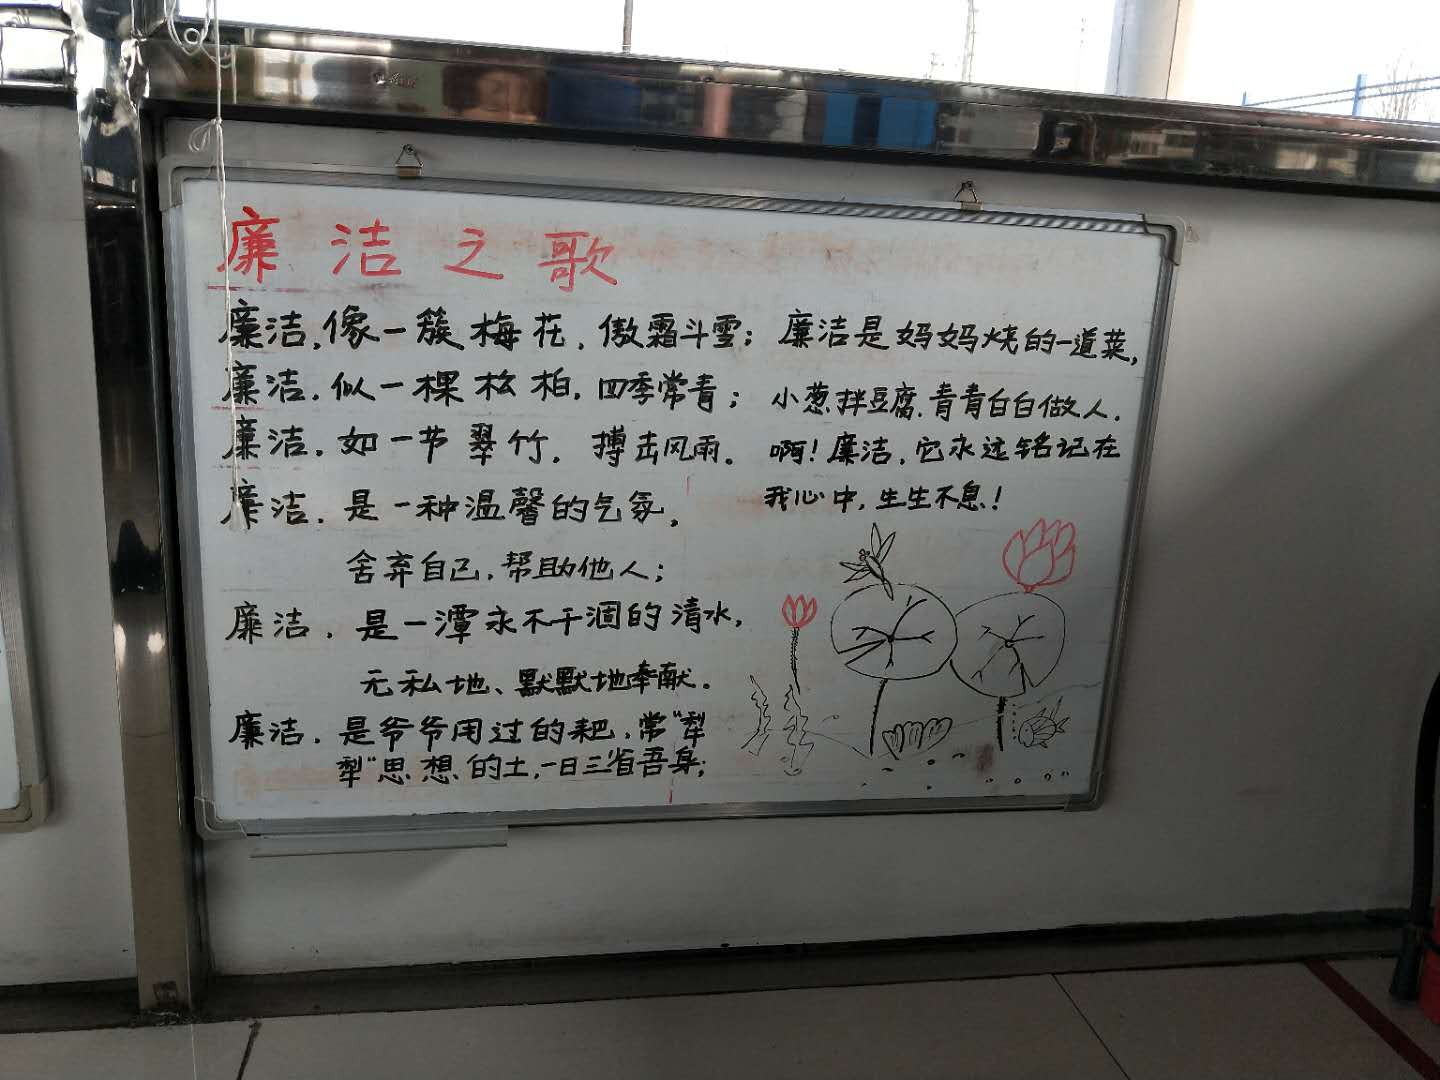 廉洁之歌
廉洁,像一簇梅花,傲霜斗雪;
廉洁,似一棵松柏,四季常青;
廉洁,如一节翠竹,搏击风雨。
廉洁,是一种温馨的气氛,
舍弃自己,帮助他人;
廉洁,是一潭永不干涸的清水,
无私地、默默地奉献。
廉洁,是爷爷用过的耙,常“犁
犁”思想的土,一日三省吾身;
廉洁是妈妈烧的一道菜,
小葱拌豆腐,青青白白做人.
啊!廉洁,它永远铭记在
我心中,生生不息!